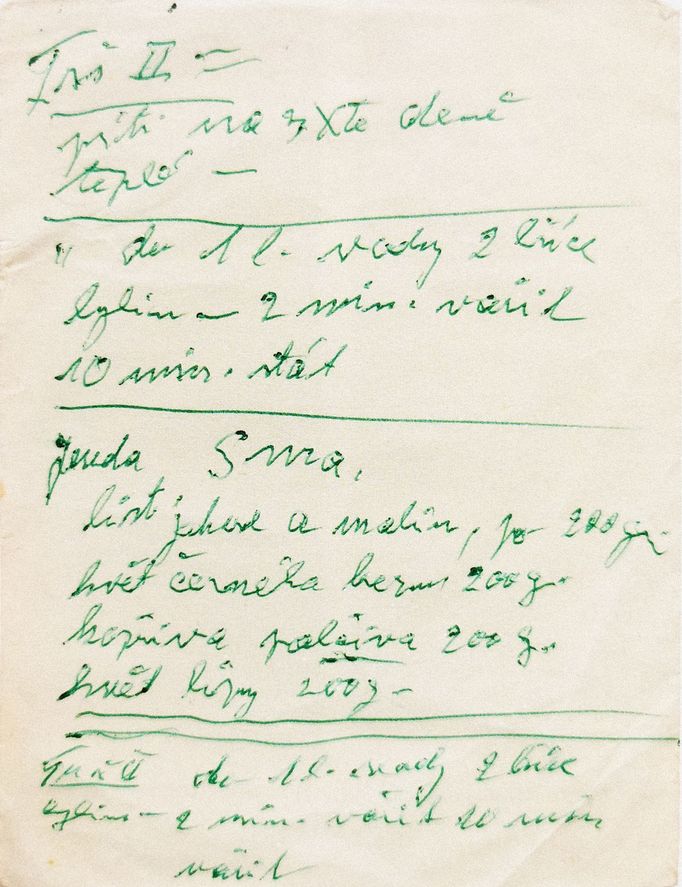 II =
píti na 3 Xte deně
teplé -
" do 1 l. vody 2 lžíce
bylin - 2 min. vařit
10 min. stát
Sma,
list jahod a malin, po 200 gr.
květ černého bezu 200 g.
kopřiva palčiva 200 g.
květ lípy 200 g -
do 1 l. vody 2 lžíce
bylin - 2 min. vářit 10 min.
vářit